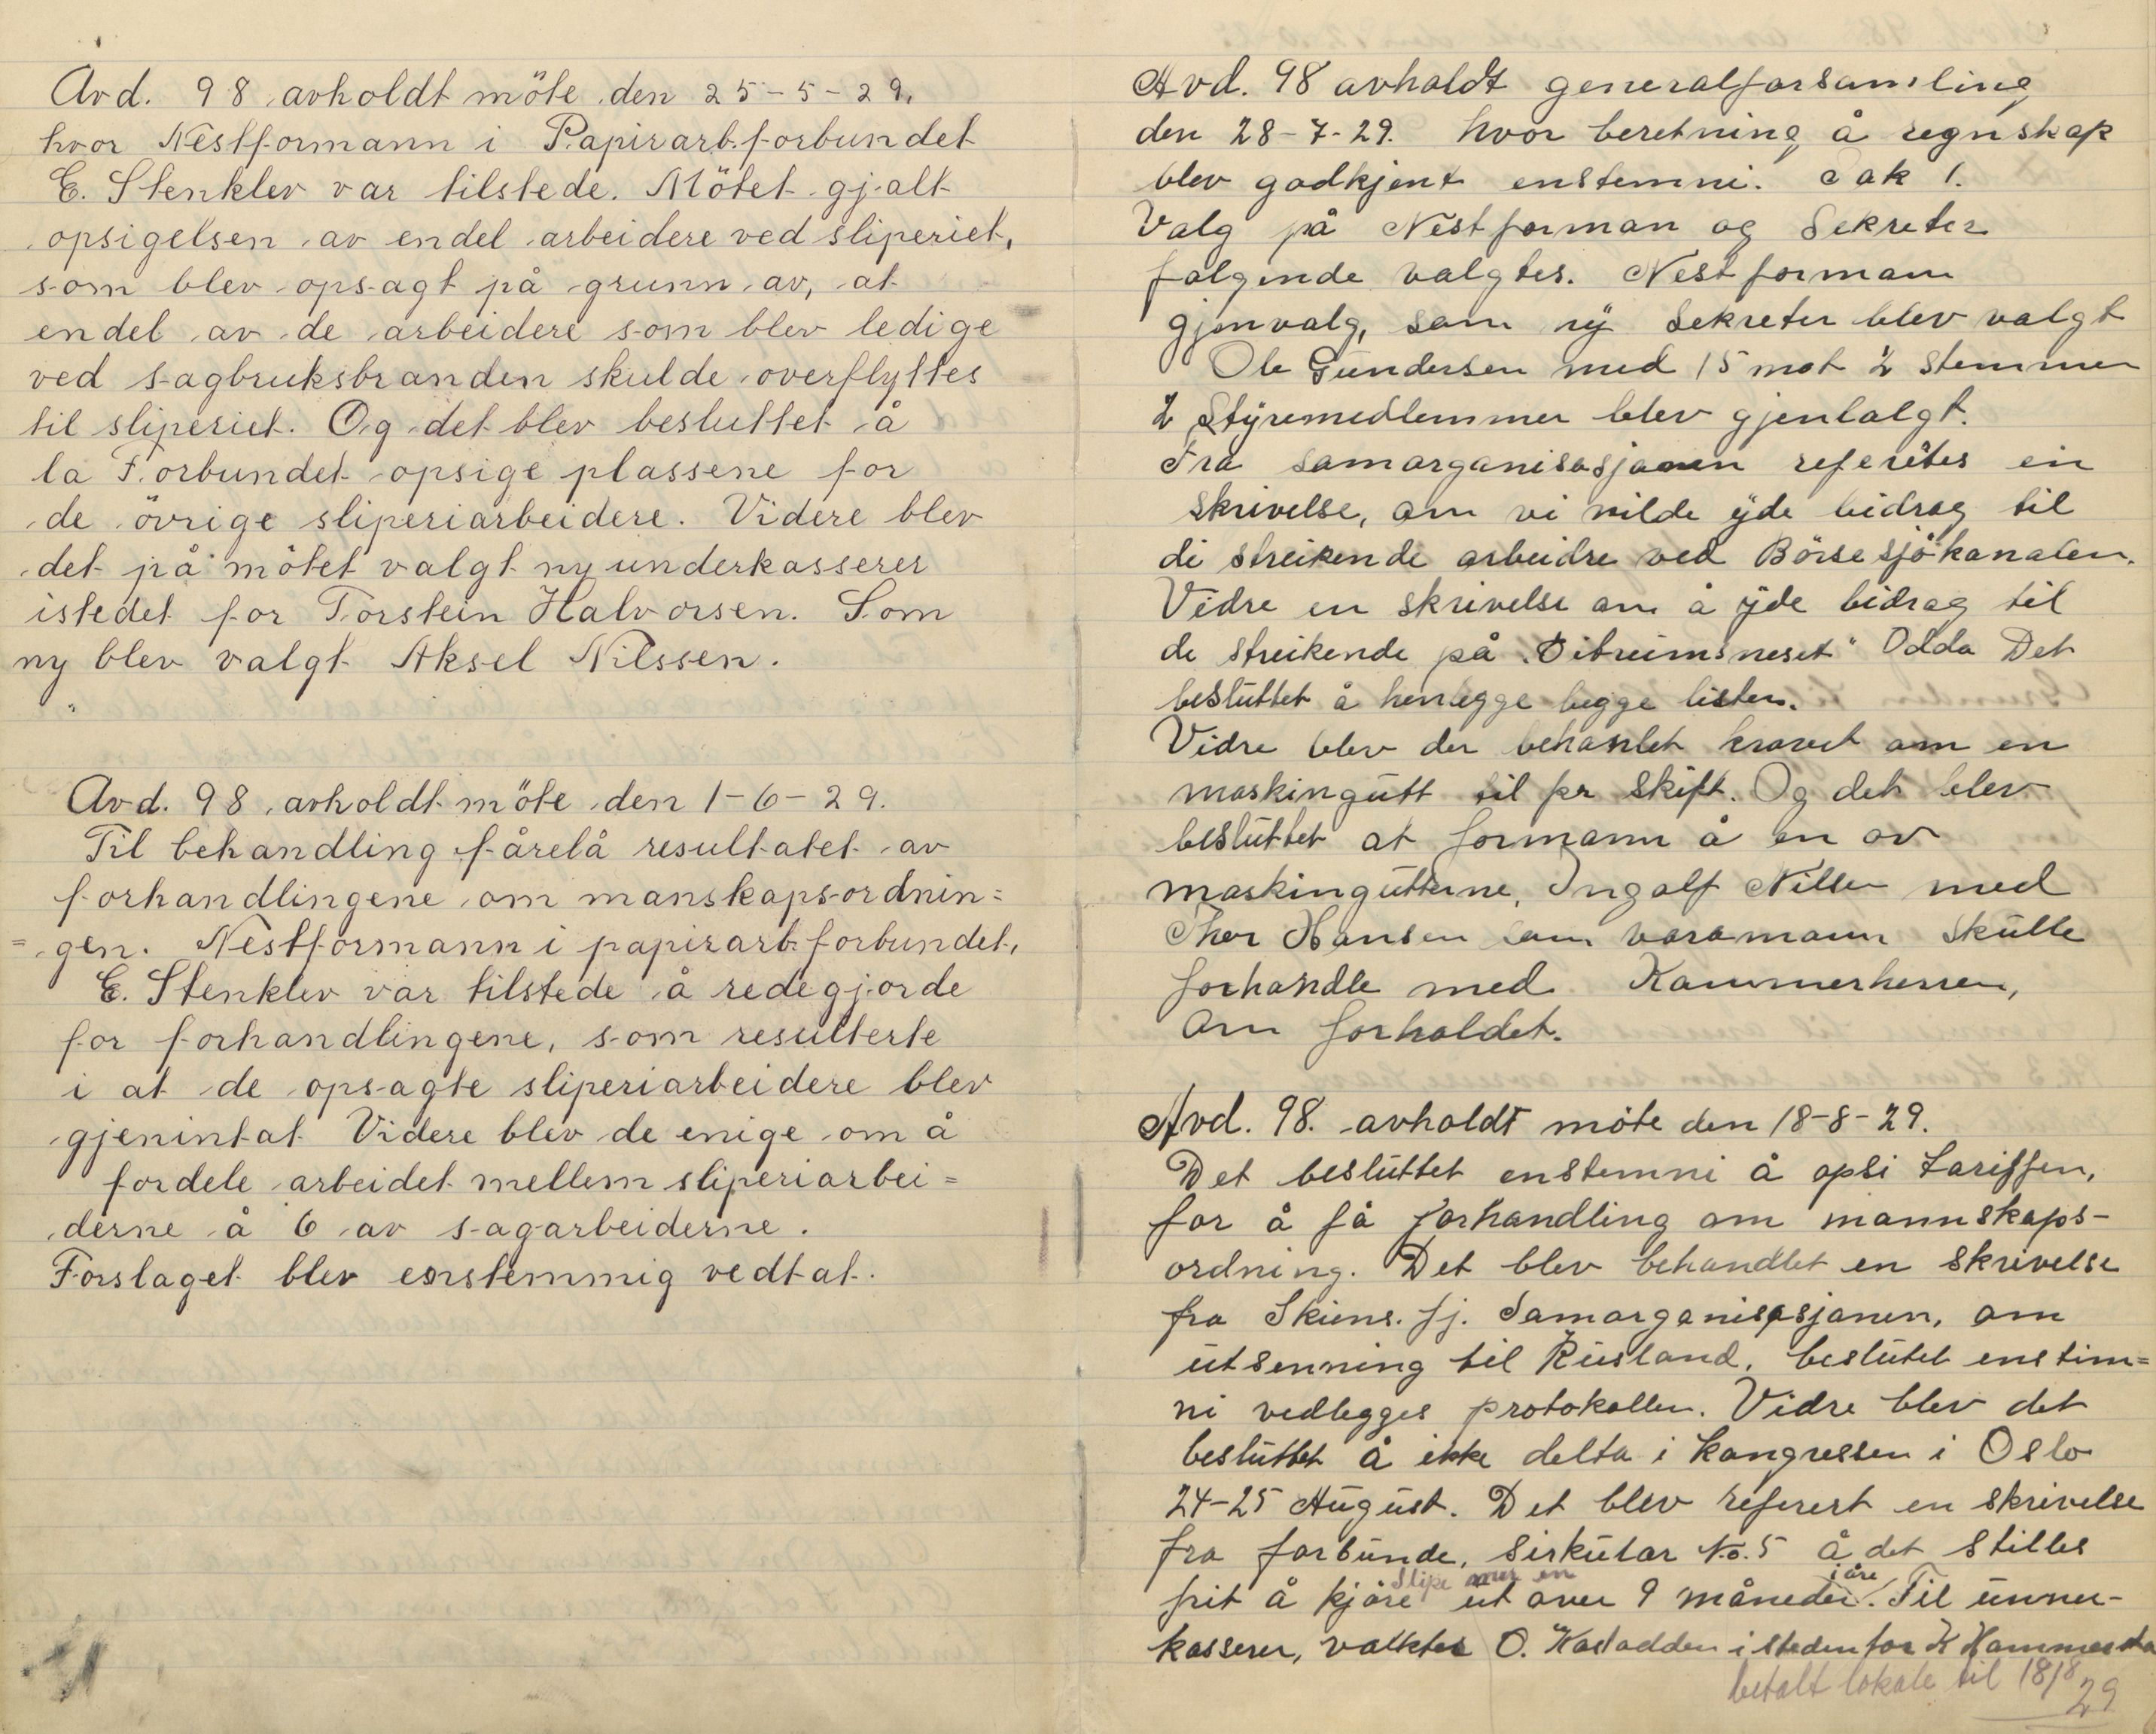 Avd. 98 avholdt möte den 25-5-29,
hvor Nestformann i Papirarb.forbundet
E. Stenklev var tilstede. Mötet gjalt
opsigelsen av endel arbeidere ved sliperiet,
som blev opsagt på grunn av, at
endel av de arbeidere som blev ledige
ved sagbruksbranden skulde overflyttes
til sliperiet. Og det blev besluttet å
la Forbundet opsige plassene for
de övrige sliperiarbeidere. Videre blev
det på mötet valgt ny underkasserer
istedet for Torstein Halvorsen. Som
ny blev valgt Aksel Nilssen.
Avd. 98 avholdt möte den 1-6-29.
Til behandling fårelå resultatet av
forhandlingene om manskapsordnin=
=gen. Nestformann i papirarb.forbundet,
E. Stenklev var tilstede å redegjorde
for forhandlingene, som resulterte
i at de opsagte sliperiarbeidere blev
gjenintat Videre blev de enige om å
fordele arbeidet mellem sliperiarbei=
derne å 6 av sagarbeiderne.
Forslaget blev enstemmig vedtat.
Avd. 98 avholdt generalforsamling
den 28-7-29. hvor beretning å regnskap
blev godkjent enstemni. Sak 1.
Valg på Nestforman og Sekreter
følgende valgtes. Nestformann
gjenvalg, som ny Sekreter blev valgt
Ole Gundersen med 15 mot 2 stemmer
2 Styremedlemmer blev gjenlalgt.
Fra samorganisasjonen referetes en
skrivelse, om vi vilde yde bidrag til
di streikende arbeidre ved Börsesjökanalen.
Vidre en skrivelse om å yde bidrag til
de streikende på "Eitreimsneset" Odda Det
besluttet å henlegge begge listen.
Vidre blev der behanlet kravet om en
maskingutt til pr skift. Og det blev
besluttet at formann å en av
maskinguttene, Ingolf Nilsen med
Thor Hansen som varamann skulle
forhandle med Kammerherren,
om forholdet.
Avd. 98. avholdt möte den 18-8-29.
Det besluttet enstemni å opsi tariffen,
for å få forhandling om mannskaps-
ordning. Det blev behandlet en skrivelse
fra Skiens. fj. Samorganisasjonen, om
utsenning til Rusland, beslutet enstim=
ni vedlegges protokollen. Vidre blev det
besluttet å ikke delta i kongressen i Oslo
24-25 August. Det blev referert en skrivelse
fra forbunde, sirkular No. 5 å det stilles
slipe mer en i åre
frit å kjöre ut over 9 måneder. Til unner-
kasserer, valktes O. Kastadden i steden for K Hammersta
betalt lokale til 18/8 29